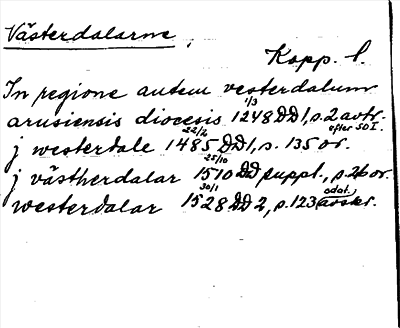 Västerdalarne,
Kopp. l.
In regione autem vesterdalum
arusiensis diocesis 1/3 1248 DD 1, s. 2 avtr.
efter SD I.
j westerdale 22/2 1485 DD 1, s. 135 or.
j västherdalar 25/10 1510 DD suppl., s. 26 or.
westerdalar 30/1 1528 DD 2, s. 123 odat. avskr.